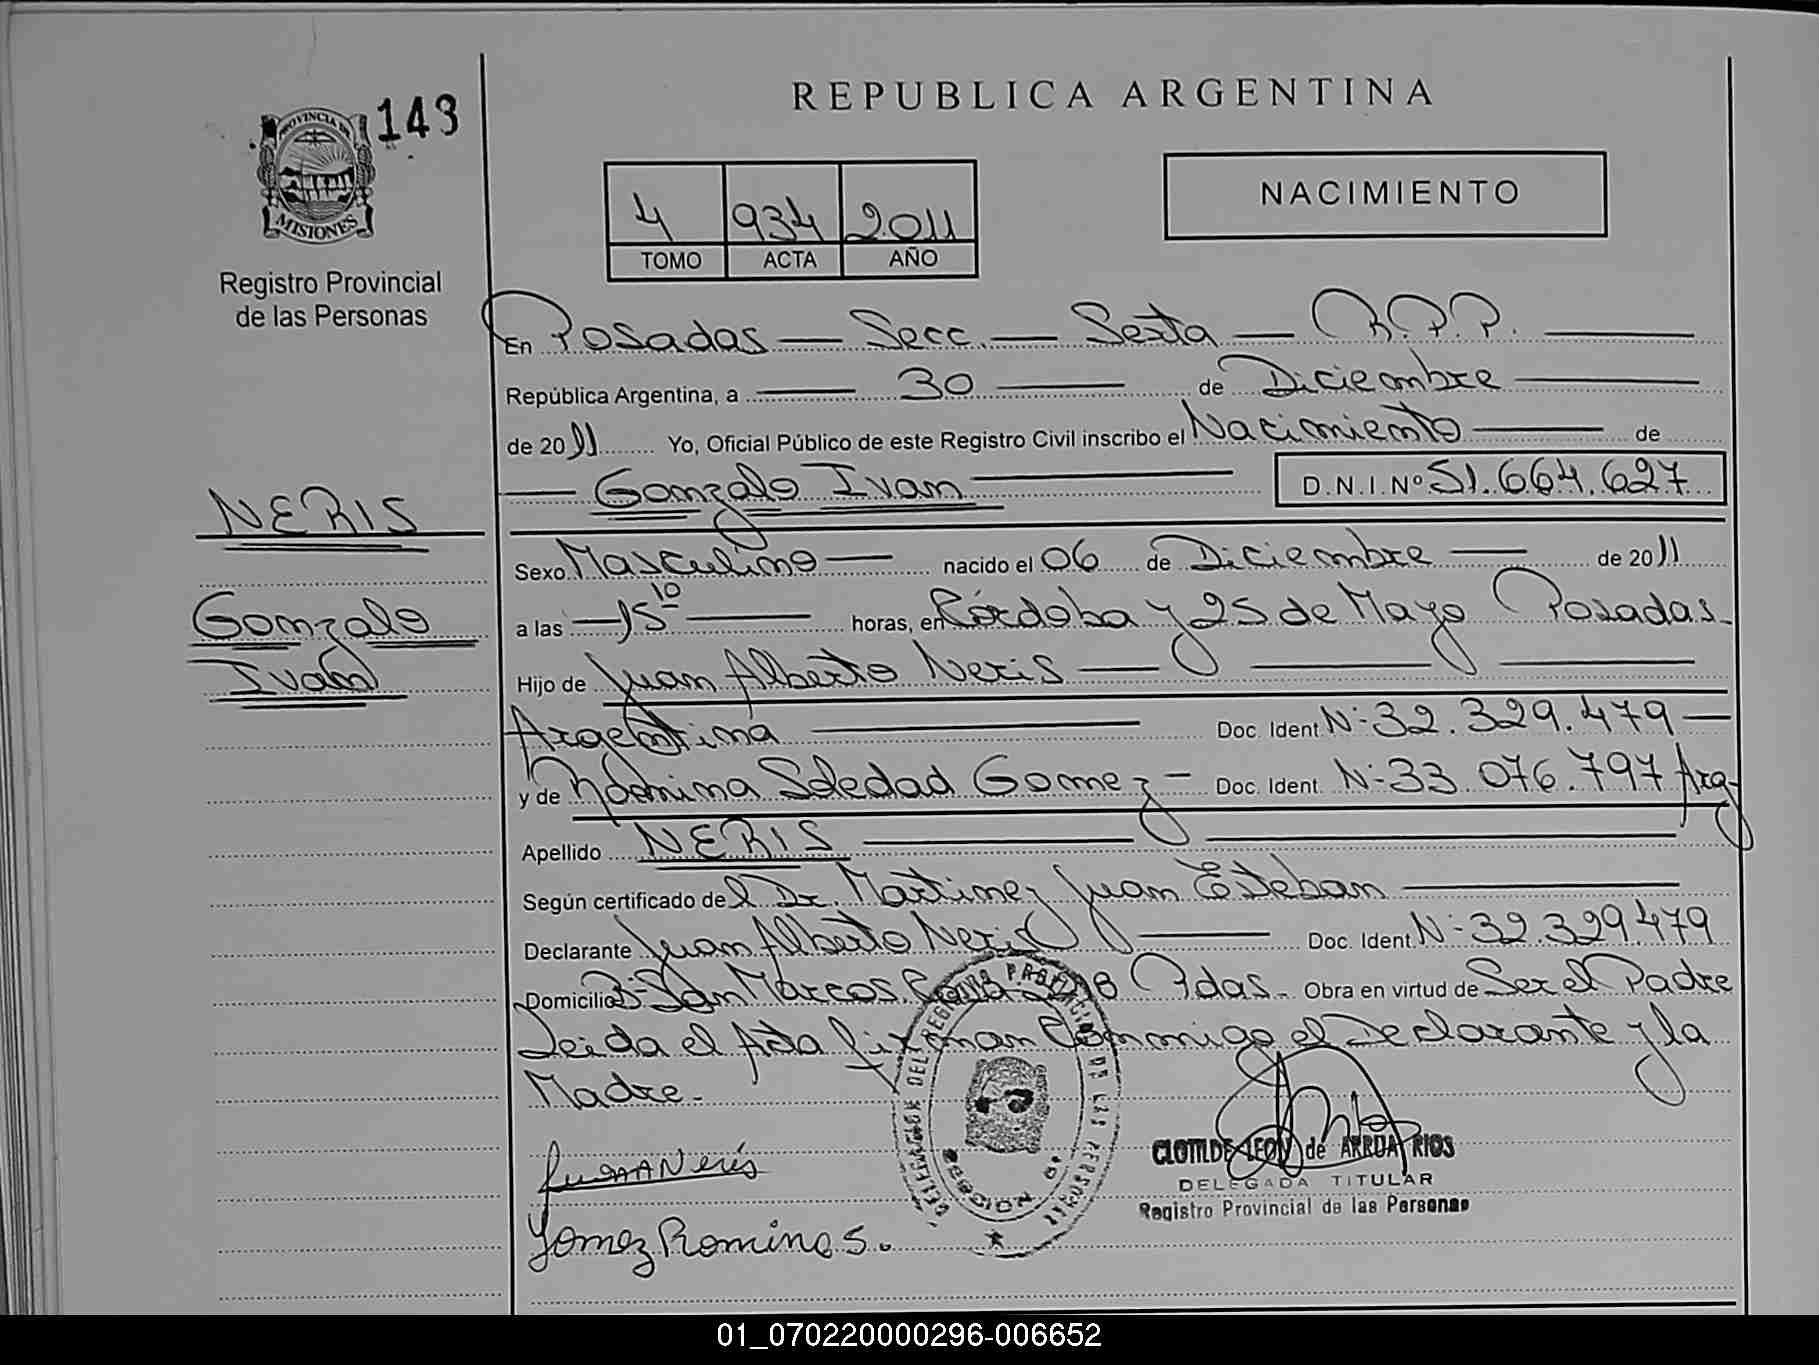 REPUBLICA ARGENTINA
143
PROVINCIA DE
MISIONES
Registro Provincial
de las Personas
NACIMIENTO
4 934 2011
TOMO ACTA AÑO
En Posadas — Secc. — Sexta — R.P.P.
República Argentina, a — 30 — de Diciembre
de 2011 Yo, Oficial Público de este Registro Civil inscribo el Nacimiento — de
— Gonzalo Ivan — D.N.I. Nº 51.664.627
NERIS
Gonzalo
Ivan
Sexo Masculino — nacido el 06 de Diciembre — de 2011
a las — 15 10 — horas, en Córdoba y 25 de Mayo Posadas.
Hijo de Juan Alberto Neris —
Argentina — Doc. Ident. Nº 32.329.479 —
y de Romina Soledad Gomez — Doc. Ident. Nº 33.076.797 Arg.
Apellido NERIS —
Según certificado del Dr. Martinez Juan Esteban —
Declarante Juan Alberto Neris — Doc. Ident. Nº 32.329.479
Domicilio Bº San Marcos Pdas. Obra en virtud de Ser el Padre
Leida el Acta firman Conmigo el Declarante y la
Madre.
DELEGACION DEL REGISTRO PROVINCIAL DE LAS PERSONAS
SECCION 6ª
Juan A Neris
Gomez Romina S.
CLOTILDE LEON de ARRUA RIOS
DELEGADA TITULAR
Registro Provincial de las Personas
01_070220000296-006652